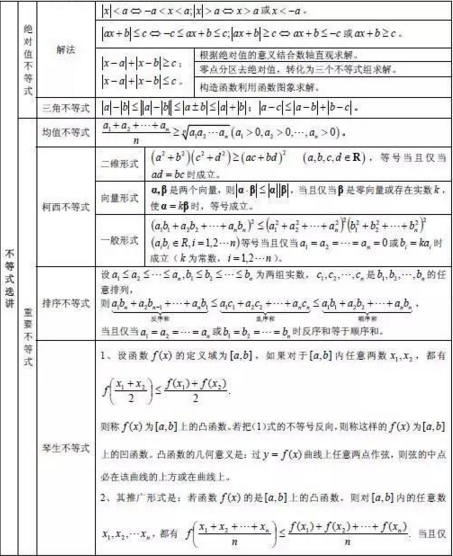 不等式选讲
绝对值不等式
解法
|x|<a⇔-a<x<a;|x|>a⇔x>a或x<-a。
|ax+b|≤c⇔-c≤ax+b≤c;|ax+b|≥c⇔ax+b≤-c或ax+b≥c。
|x-a|+|x-b|≥c;
|x-a|+|x-b|≤c。
根据绝对值的意义结合数轴直观求解。
零点分区去绝对值,转化为三个不等式组求解。
构造函数利用函数图象求解。
三角不等式
|a|-|b|≤||a|-|b||≤|a±b|≤|a|+|b|;|a-c|≤|a-b|+|b-c|。
重要不等式
均值不等式
(a₁+a₂+⋯+aₙ)/n≥ⁿ√(a₁a₂…aₙ)(a₁>0,a₂>0,⋯,aₙ>0)。
柯西不等式
二维形式
(a²+b²)(c²+d²)≥(ac+bd)² (a,b,c,d∈R),等号当且仅当
ad=bc时成立。
向量形式
α,β是两个向量,则|α·β|≤|α||β|,当且仅当β是零向量或存在实数k,
使α=kβ时,等号成立。
一般形式
(a₁b₁+a₂b₂+⋯+aₙbₙ)²≤(a₁²+a₂²+⋯+aₙ²)(b₁²+b₂²+⋯+bₙ²)
(aᵢbᵢ∈R,i=1,2⋯n)等号当且仅当a₁=a₂=⋯=aₙ=0或bᵢ=kaᵢ时
成立(k为常数,i=1,2⋯n)。
排序不等式
设a₁≤a₂≤⋯≤aₙ,b₁≤b₂≤⋯≤bₙ为两组实数,c₁,c₂,⋯,cₙ是b₁,b₂,⋯,bₙ的任
意排列,
则a₁bₙ+a₂bₙ₋₁+⋯+aₙb₁≤a₁c₁+a₂c₂+⋯+aₙcₙ≤a₁b₁+a₂b₂+⋯+aₙbₙ,
反序和 乱序和 顺序和
当且仅当a₁=a₂=⋯=aₙ或b₁=b₂=⋯=bₙ时反序和等于顺序和。
琴生不等式
1、设函数f(x)的定义域为[a,b],如果对于[a,b]内任意两数x₁,x₂,都有
f((x₁+x₂)/2)≤(f(x₁)+f(x₂))/2.
则称f(x)为[a,b]上的凸函数。若把(1)式的不等号反向,则称这样的f(x)为[a,b]
上的凹函数。凸函数的几何意义是:过y=f(x)曲线上任意两点作弦,则弦的中点
必在该曲线的上方或在曲线上。
2、其推广形式是:若函数f(x)的是[a,b]上的凸函数,则对[a,b]内的任意数
x₁,x₂,⋯xₙ,都有 f((x₁+x₂+⋯+xₙ)/n)≤(f(x₁)+f(x₂)+⋯+f(xₙ))/n. 当且仅